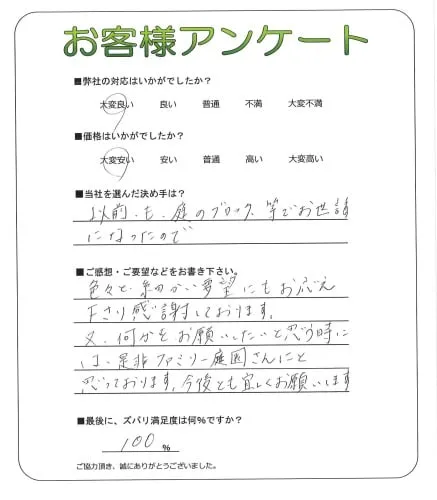 お客様アンケート
■弊社の対応はいかがでしたか?
大変良い 良い 普通 不満 大変不満
■価格はいかがでしたか?
大変安い 安い 普通 高い 大変高い
■当社を選んだ決め手は?
以前も、庭のブロック等でお世話
になったので
■ご感想・ご要望などをお書き下さい。
色々と細かい要望にもお応え
下さり感謝しております。
又、何かをお願いしたいと思う時に
は、是非ファミリー庭園さんにと
思っております。今後とも宜しくお願いします
■最後に、ズバリ満足度は何%ですか?
100%
ご協力頂き、誠にありがとうございました。